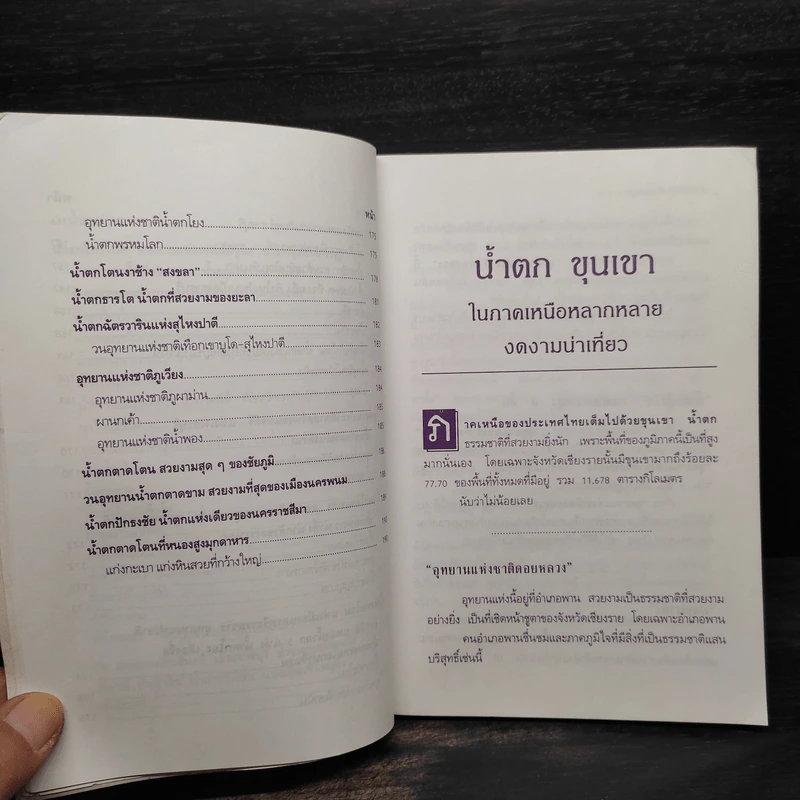 หน้า
อุทยานแห่งชาติน้ำตกโยง 175
น้ำตกพรหมโลก 175
น้ำตกโตนงาช้าง “สงขลา” 178
น้ำตกธารโต น้ำตกที่สวยงามของยะลา 181
น้ำตกฉัตรวารินแห่งสุไหงปาตี 182
วนอุทยานแห่งชาติเทือกเขาบูโด-สุไหงปาตี 183
อุทยานแห่งชาติภูเวียง 184
อุทยานแห่งชาติภูผาม่าน 184
ผานกเค้า 185
อุทยานแห่งชาติน้ำพอง 185
น้ำตกตาดโตน สวยงามสุด ๆ ของชัยภูมิ
วนอุทยานน้ำตกตาดขาม สวยงามที่สุดของเมืองนครพนม
น้ำตกปักธงชัย น้ำตกแห่งเดียวของนครราชสีมา
น้ำตกตาดโตนที่หนองสูงมุกดาหาร
แก่งกะเบา แก่งหินสวยที่กว้างใหญ่
น้ำตก ขุนเขา
ในภาคเหนือหลากหลาย
งดงามน่าเที่ยว
ภาคเหนือของประเทศไทยเต็มไปด้วยขุนเขา น้ำตก
ธรรมชาติที่สวยงามยิ่งนัก เพราะพื้นที่ของภูมิภาคนี้เป็นที่สูง
มากนั่นเอง โดยเฉพาะจังหวัดเชียงรายนั้นมีขุนเขามากถึงร้อยละ
77.70 ของพื้นที่ทั้งหมดที่มีอยู่ รวม 11,678 ตารางกิโลเมตร
นับว่าไม่น้อยเลย
“อุทยานแห่งชาติดอยหลวง”
อุทยานแห่งนี้อยู่ที่อำเภอพาน สวยงามเป็นธรรมชาติที่สวยงาม
อย่างยิ่ง เป็นที่เชิดหน้าชูตาของจังหวัดเชียงราย โดยเฉพาะอำเภอพาน
คนอำเภอพานชื่นชมและภาคภูมิใจที่มีสิ่งที่เป็นธรรมชาติแสน
บริสุทธิ์เช่นนี้